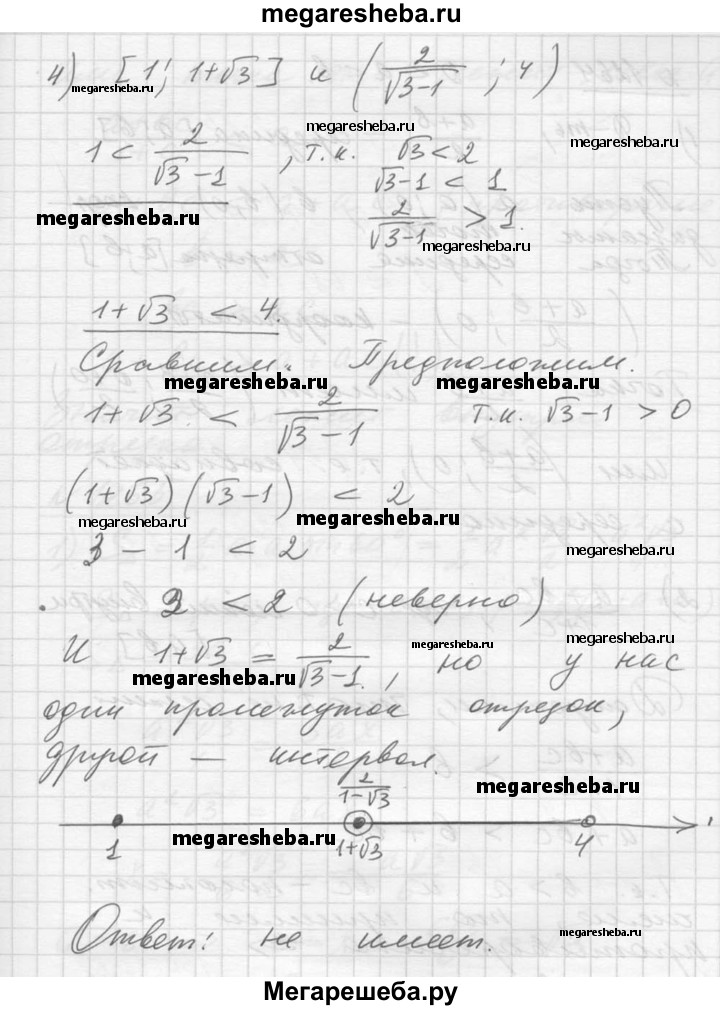 megaresheba.ru
4) [1; 1+√3] и (2/(√3-1); 4)
megaresheba.ru
megaresheba.ru
1 < 2/(√3-1), т.к. √3 < 2
√3-1 < 1
megaresheba.ru
2/(√3-1) > 1.
megaresheba.ru
1+√3 < 4.
Сравним. Предположим.
megaresheba.ru megaresheba.ru
1+√3 < 2/(√3-1) т.к. √3-1 > 0
(1+√3)(√3-1) < 2
megaresheba.ru megaresheba.ru
3 - 1 < 2 megaresheba.ru
2 < 2 (неверно)
megaresheba.ru megaresheba.ru
И 1+√3 = 2/(√3-1), но у нас
megaresheba.ru
один промежуток отрезок,
другой — интервал.
megaresheba.ru
2/(1-√3)
megaresheba.ru
1 1+√3 4
Ответ: не имеет.
megaresheba.ru
Мегарешеба.ру